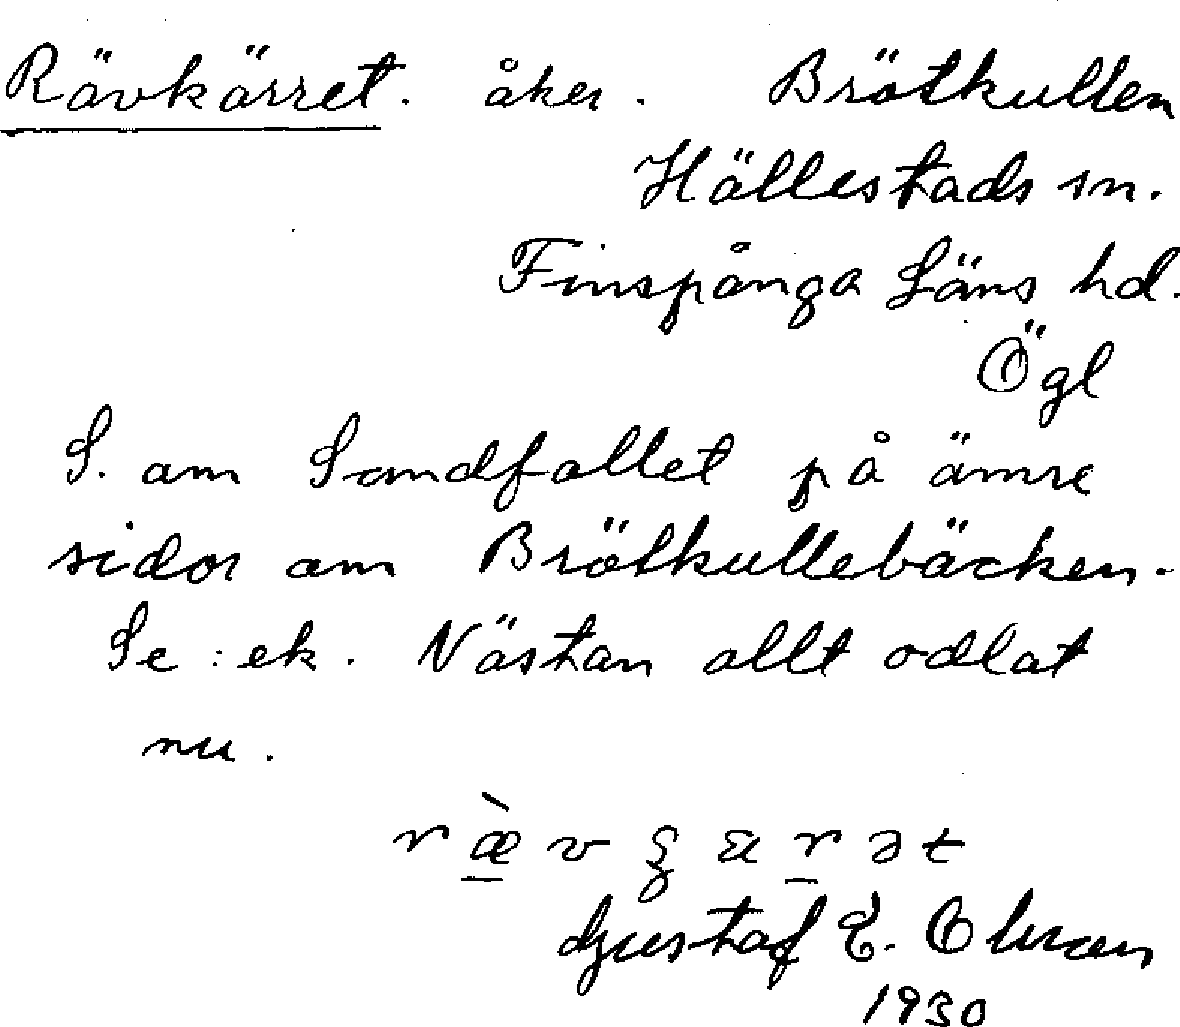 Rävkärret. åker. Brötkullen
Hällestads sn.
Finspånga Läns hd.
Ögl
S. om Sandfallet på ömse
sidor om Brötkullebäcken.
Se: ek. Nästan allt odlat
nu.
Gustaf E.
1930